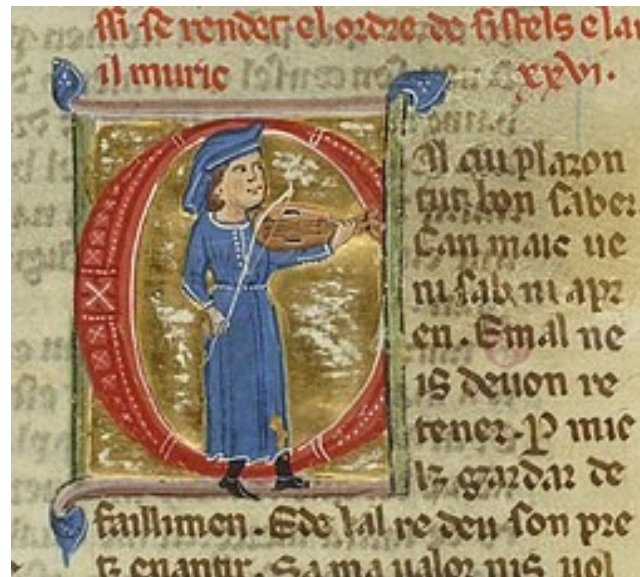 ssi se rendet el ordre de sistels e la
il muric xxvi.
Al cui plazon
tut bon saber
Can maic ue
ni sab ni apr
en. E mal ne
is deuon re
tener. P mie
lz gardar de
faillimen. E de tal re deu son pre
tz enantir. Sa ma ualor nis uol